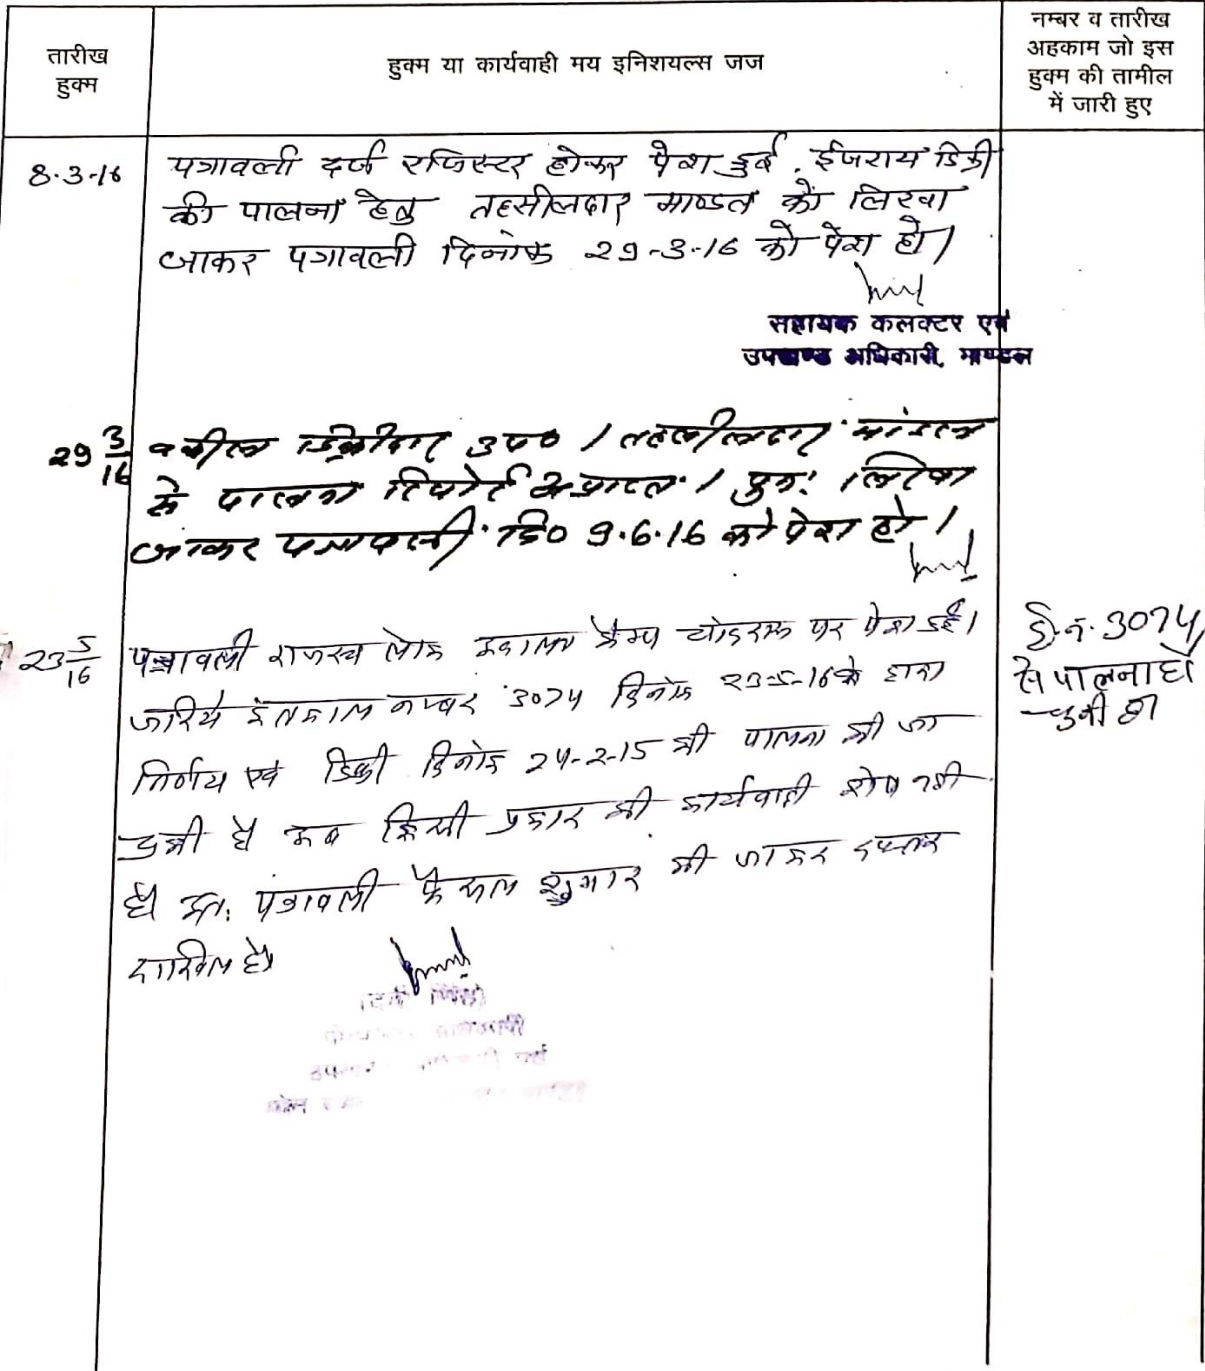 तारीख
हुक्म
हुक्म या कार्यवाही मय इनिशयल्स जज
नम्बर व तारीख
अहकाम जो इस
हुक्म की तामील
में जारी हुए
8-3-16
पत्रावली दर्ज रजिस्टर होकर पेश हुई. ईजराय डिक्री
की पालना हेतु तहसीलदार माण्डल को लिखा
जाकर पत्रावली दिनांक 29-3-16 को पेश हो।
सहायक कलक्टर एवं
उपखण्ड अधिकारी, माण्डल
29 3/16
वकील डिक्रीदार उप०। तहसीलदार मांडल
से पालना रिपोर्ट अप्राप्त। पुनः लिखा
जाकर पत्रावली दि० 9.6.16 को पेश हो।
23 5/16
पत्रावली राजस्व लोक अदालत कैम्प पर पेश हुई।
जरिये इंतकाल नम्बर 3074 दिनांक 23-5-16 के द्वारा
निर्णय एवं डिक्री दिनांक 24-2-15 की पालना की जा
चुकी है अब किसी प्रकार की कार्यवाही शेष नही
है अतः पत्रावली फैसल शुमार की जाकर दफ्तर
दाखिल हो।
3074
से पालना हो
चुकी है